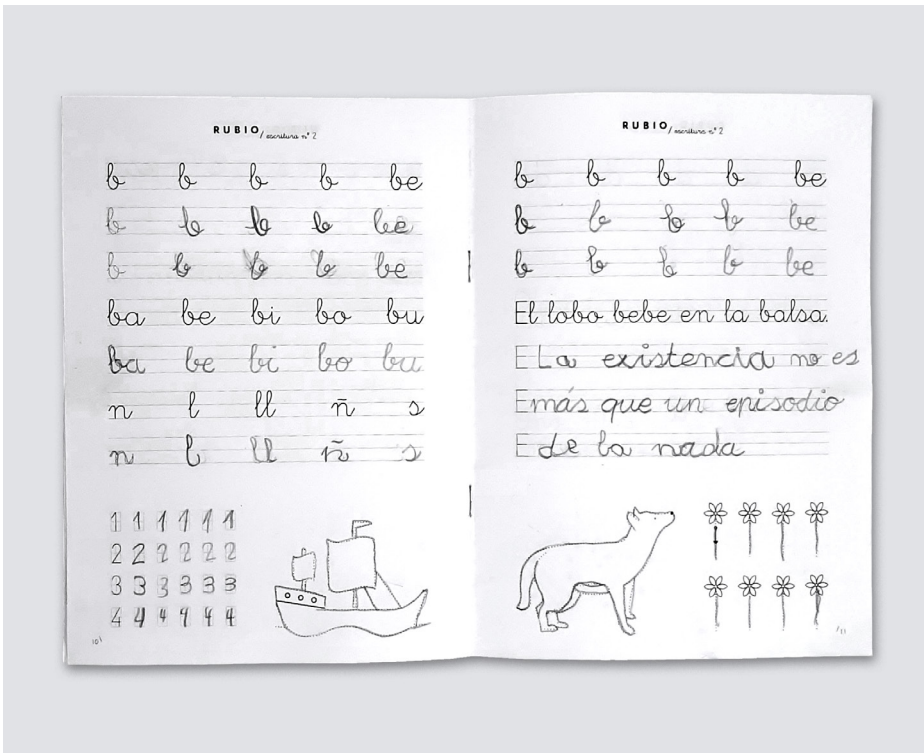 RUBIO/ escritura n° 2
b b b b be
b b b b be
b b b b be
ba be bi bo bu
ba be bi bo bu
n l ll ñ s
n l ll ñ s
1 1 1 1 1 1
2 2 2 2 2 2
3 3 3 3 3 3
4 4 4 4 4 4
10
RUBIO/ escritura n° 2
b b b b be
b b b b be
b b b b be
El lobo bebe en la balsa.
E La existencia no es
E más que un episodio
E de la nada
11